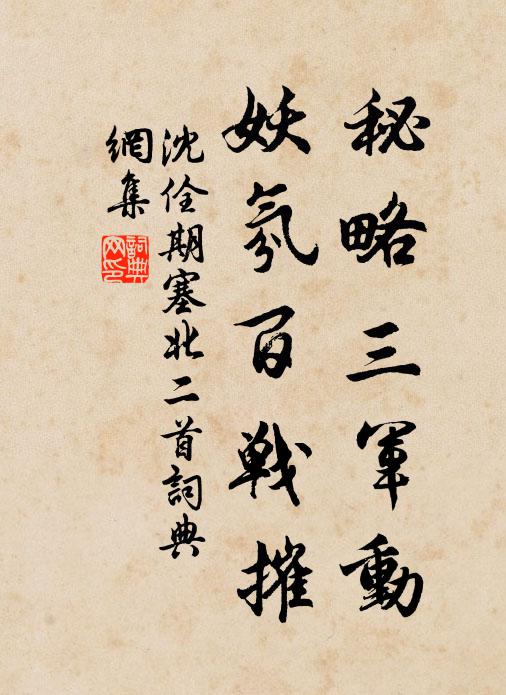 秘略三軍動
妖氛百戰摧
沈佺期塞北二首詞典
網集
詞典
网印